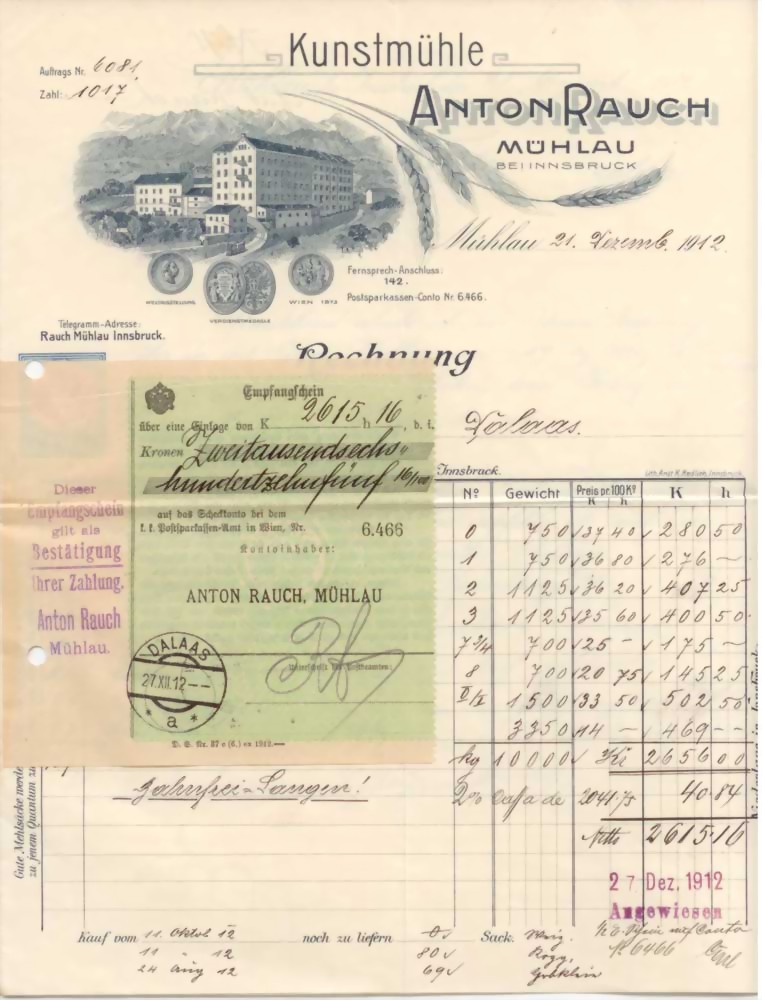 Kunstmühle
Auftrags Nr. 6081
Zahl: 1017
ANTON RAUCH
MÜHLAU
BEI INNSBRUCK
Mühlau 21. Dezemb. 1912.
Fernsprech-Anschluss:
142.
WELTAUSSTELLUNG WIEN 1873
Postsparkassen-Conto Nr. 6.466.
VERDIENSTMEDAILLE
Telegramm-Adresse:
Rauch Mühlau Innsbruck.
Rechnung
Dalaas.
Innsbruck.
Empfangschein
über eine Einlage von K 2615 h 16, d. i.
Kronen Zweitausendsechs-
hundertzehnfünf 16/100
auf das Scheckkonto bei dem
k. k. Postsparkassen-Amt in Wien, Nr. 6.466
Kontoinhaber:
ANTON RAUCH, MÜHLAU
Unterschrift des Postbeamten:
DALAAS
27.XII.12--
* a *
D. S. Nr. 27 c (6.) ex 1912.—
Dieser
Empfangschein
gilt als
Bestätigung
Ihrer Zahlung.
Anton Rauch
Mühlau.
No Gewicht Preis pr. 100 Ko K h
K h
0 750 37 40 280 50
1 750 36 80 276 —
2 1125 36 20 407 25
3 1125 35 60 400 50
7 3/4 700 25 — 175 —
8 700 20 75 145 25
1500 33 50 502 50
3350 14 — 469 —
kg 10000 Kr 2656 00
Bahnfrei Langen!
2% Cassa de 2041.75 40.84
Netto 2615.16
27 Dez. 1912
Angewiesen
Gute Mehlsäcke werde
zu jenem Quantum zu
Kauf vom 11. Oktob 12 noch zu liefern Sack.
11 " 12 80 Rogg.
24 Aug 12 69
6466